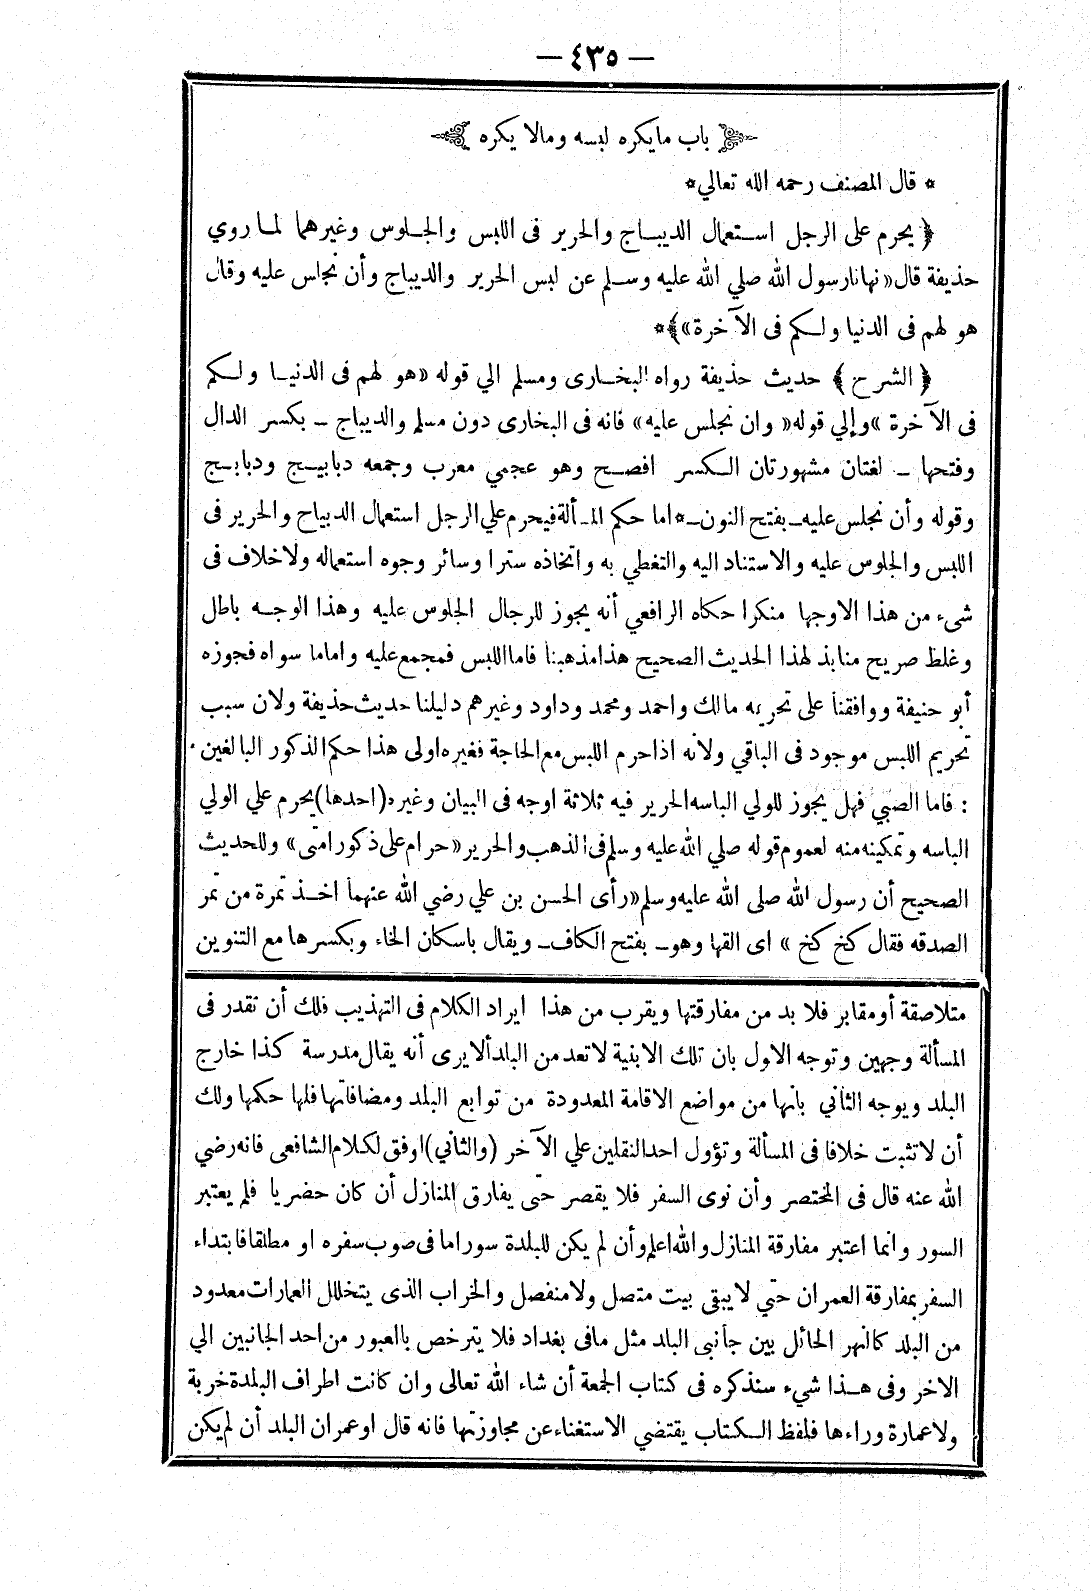 — ٤٣٥ —
باب مايكره لبسه ومالا يكره
* قال المصنف رحمه الله تعالي*
﴿ يحرم على الرجل استعمال الديباج والحرير فى اللبس والجلوس وغيرهما لما روي
حذيفة قال «نهانا رسول الله صلي الله عليه وسلم عن لبس الحرير والديباج وأن نجلس عليه وقال
هو لهم فى الدنيا ولكم فى الآخرة» ﴾*
﴿ الشرح ﴾ حديث حذيفة رواه البخارى ومسلم الي قوله «هو لهم فى الدنيا ولكم
فى الآخرة» وإلي قوله «وان نجلس عليه» فانه فى البخارى دون مسلم والديباج ـ بكسر الدال
وفتحها ـ لغتان مشهورتان الكسر افصح وهو عجمي معرب وجمعه دبابيج وديابيج
وقوله وأن نجلس عليه ـ بفتح النون ـ * اما حكم المسألة فيحرم علي الرجل استعمال الديباج والحرير فى
اللبس والجلوس عليه والاستناد اليه والتغطي به واتخاذه سترا وسائر وجوه استعماله ولاخلاف فى
شىء من هذا الاوجها منكرا حكاه الرافعي أنه يجوز للرجال الجلوس عليه وهذا الوجه باطل
وغلط صريح منابذ لهذا الحديث الصحيح هذا مذهبنا فاما اللبس فمجمع عليه واماما سواه فجوزه
أبو حنيفة ووافقنا على تحريمه مالك واحمد ومحمد وداود وغيرهم دليلنا حديث حذيفة ولان سبب
تحريم اللبس موجود فى الباقي ولانه اذا حرم اللبس مع الحاجة فغيره اولى هذا حكم الذكور البالغين .
: فاما الصبي فهل يجوز للولي الباسه الحرير فيه ثلاثة اوجه فى البيان وغيره (احدها) يحرم علي الولي
الباسه وتمكينه منه لعموم قوله صلي الله عليه وسلم فى الذهب والحرير «حرام على ذكور امتى» وللحديث
الصحيح أن رسول الله صلى الله عليه وسلم «رأى الحسن بن علي رضي الله عنهما اخذ تمرة من تمر
الصدقه فقال كخ كخ» اى القها وهو ـ بفتح الكاف ـ ويقال باسكان الخاء وبكسرها مع التنوين
متلاصقة أو مقابر فلا بد من مفارقتها ويقرب من هذا ايراد الكلام فى التهذيب فلك أن تقدر فى
المسألة وجهين وتوجه الاول بان تلك الابنية لا تعد من البلد ألا يرى أنه يقال مدرسة كذا خارج
البلد ويوجه الثاني بانها من مواضع الاقامة المعدودة من توابع البلد ومضافاتها فلها حكمها ولك
أن لا تثبت خلافا فى المسألة وتؤول احد النقلين علي الآخر (والثاني) اوفق لكلام الشافعى فانه رضي
الله عنه قال فى المختصر وأن نوى السفر فلا يقصر حتى يفارق المنازل أن كان حضريا فلم يعتبر
السور وانما اعتبر مفارقة المنازل والله اعلم وأن لم يكن للبلدة سور اما فى صوب سفره او مطلقا فابتداء
السفر بمفارقة العمران حتي لا يبقى بيت متصل ولا منفصل والخراب الذى يتخلل العمارات معدود
من البلد كالنهر الحائل بين جانبى البلد مثل مافى بغداد فلا يترخص بالعبور من احد الجانبين الي
الاخر وفى هذا شىء سنذكره فى كتاب الجمعة أن شاء الله تعالى وان كانت اطراف البلدة خربة
ولا عمارة وراءها فلفظ الكتاب يقتضي الاستغناء عن مجاوزتها فانه قال او عمران البلد أن لم يكن